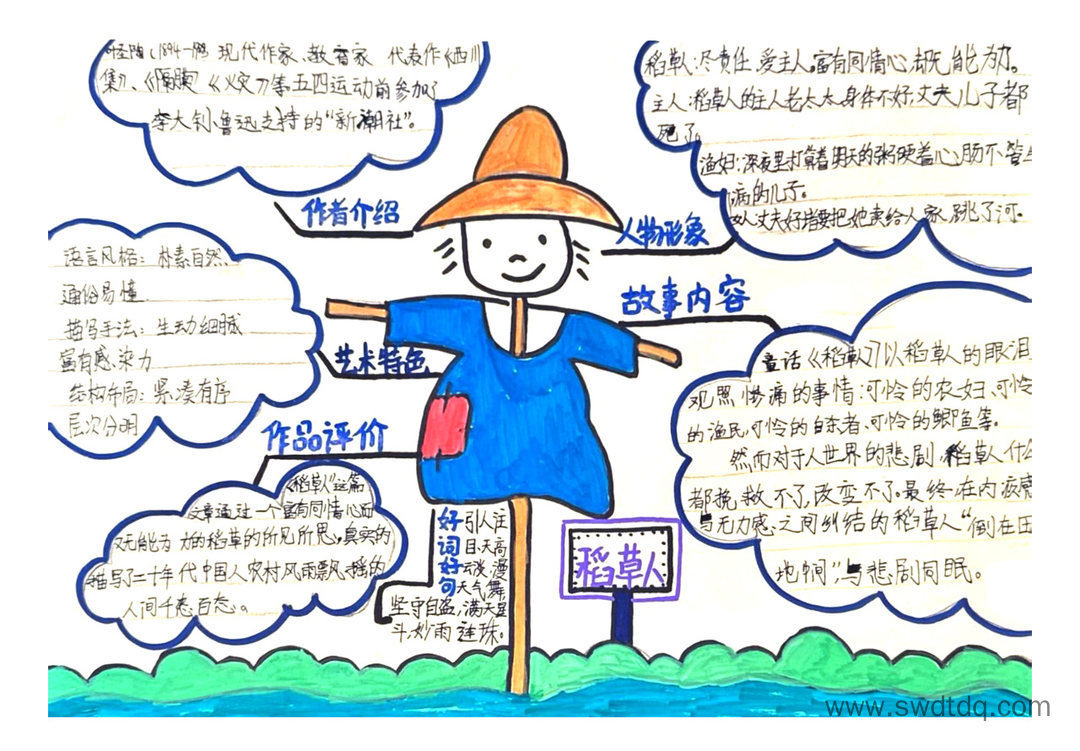 (1894-1988 现代作家、教育家 代表作《西川
集》、《隔膜》《火灾》等五四运动前参加了
李大钊、鲁迅支持的“新潮社”。
作者介绍
语言风格：朴素自然、
通俗易懂
描写手法：生动细腻
富有感染力
结构布局：紧凑有序
层次分明
艺术特色
作品评价
《稻草人》这篇
文章通过一个富有同情心而
又无能为力的稻草的所见所思，真实的
描写了二十年代中国人农村风雨飘摇的
人间千态百态。
好词好句
引人注
目、天高
云淡、漫
天气舞，
坚守自盗，满天星
斗，妙雨连珠。
稻草人：尽责任、爱主人，富有同情心，却无能为力。
主人：稻草人的主人老太太，身体不好，丈夫儿子都
死了。
渔妇：深夜里打算着明天的粥硬着心肠不管生
病的儿子。
女人丈夫好堵要把她卖给人家，跳了河。
人物形象
故事内容
童话《稻草人》以稻草人的眼泪
观照惨痛的事情：可怜的农妇、可怜
的渔民，可怜的自杀者、可怜的鲫鱼等。
然而对于人世界的悲剧，稻草人什么
都挽救不了，改变不了。最终，在内疚感
与无力感之间纠结的稻草人“倒在田
地中间”，与悲剧同眠。
稻草人
www.swdtdq.com